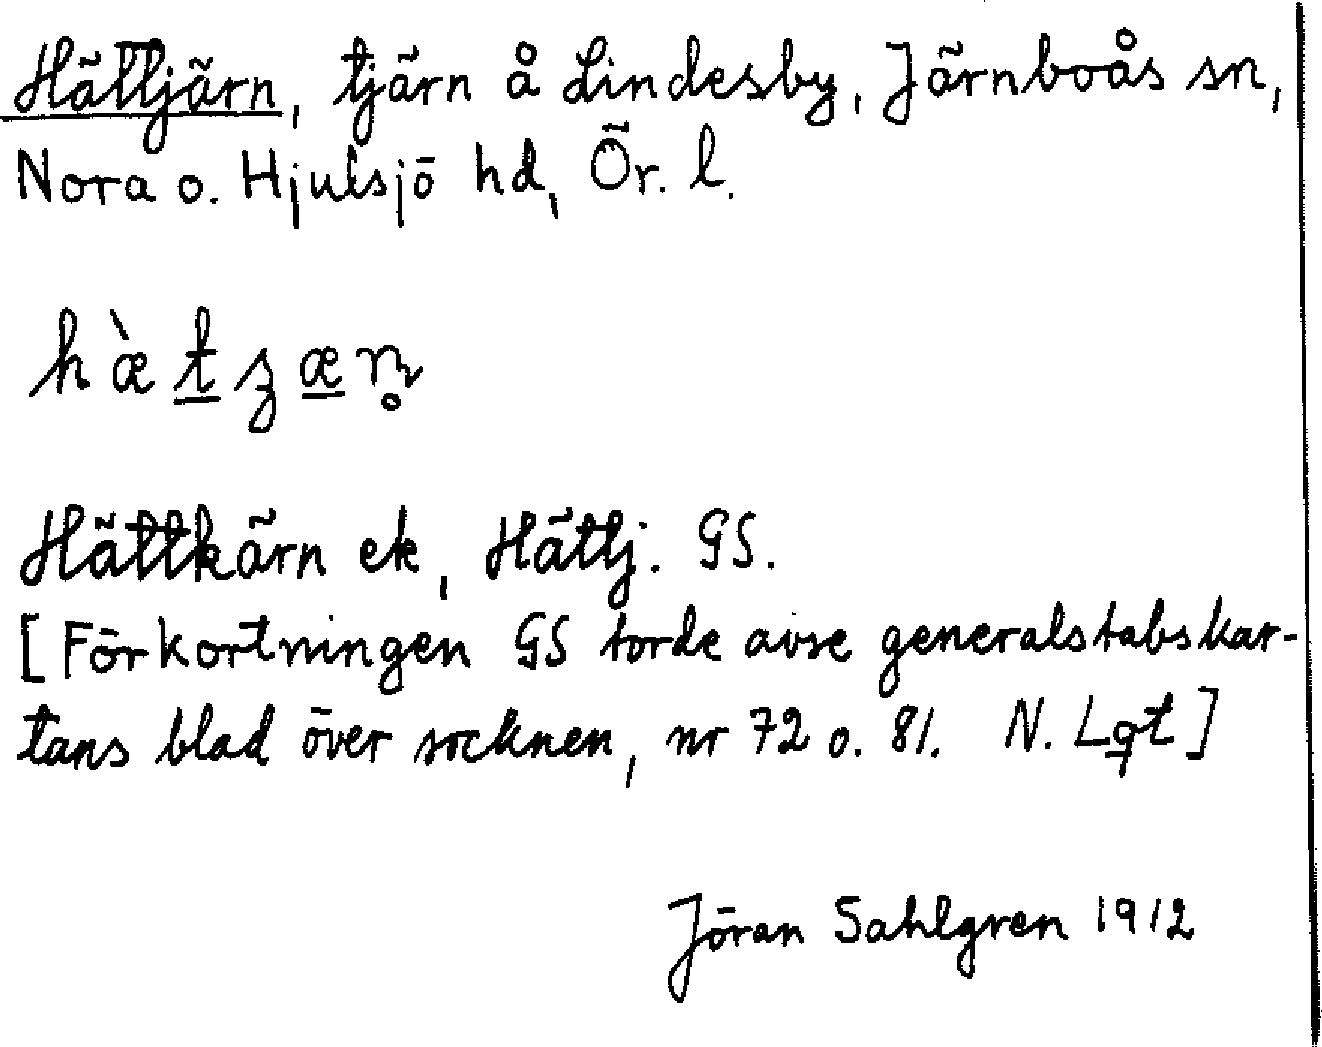 Hättjärn, tjärn å Lindesby, Järnboås sn,
Nora o. Hjulsjö hd, Ör. l.
Hättkärn ek, Hättj. GS.
[Förkortningen GS torde avse generalstabskar-
tans blad över socknen, nr 72 o. 81. N. Lgt]
Jöran Sahlgren 1912